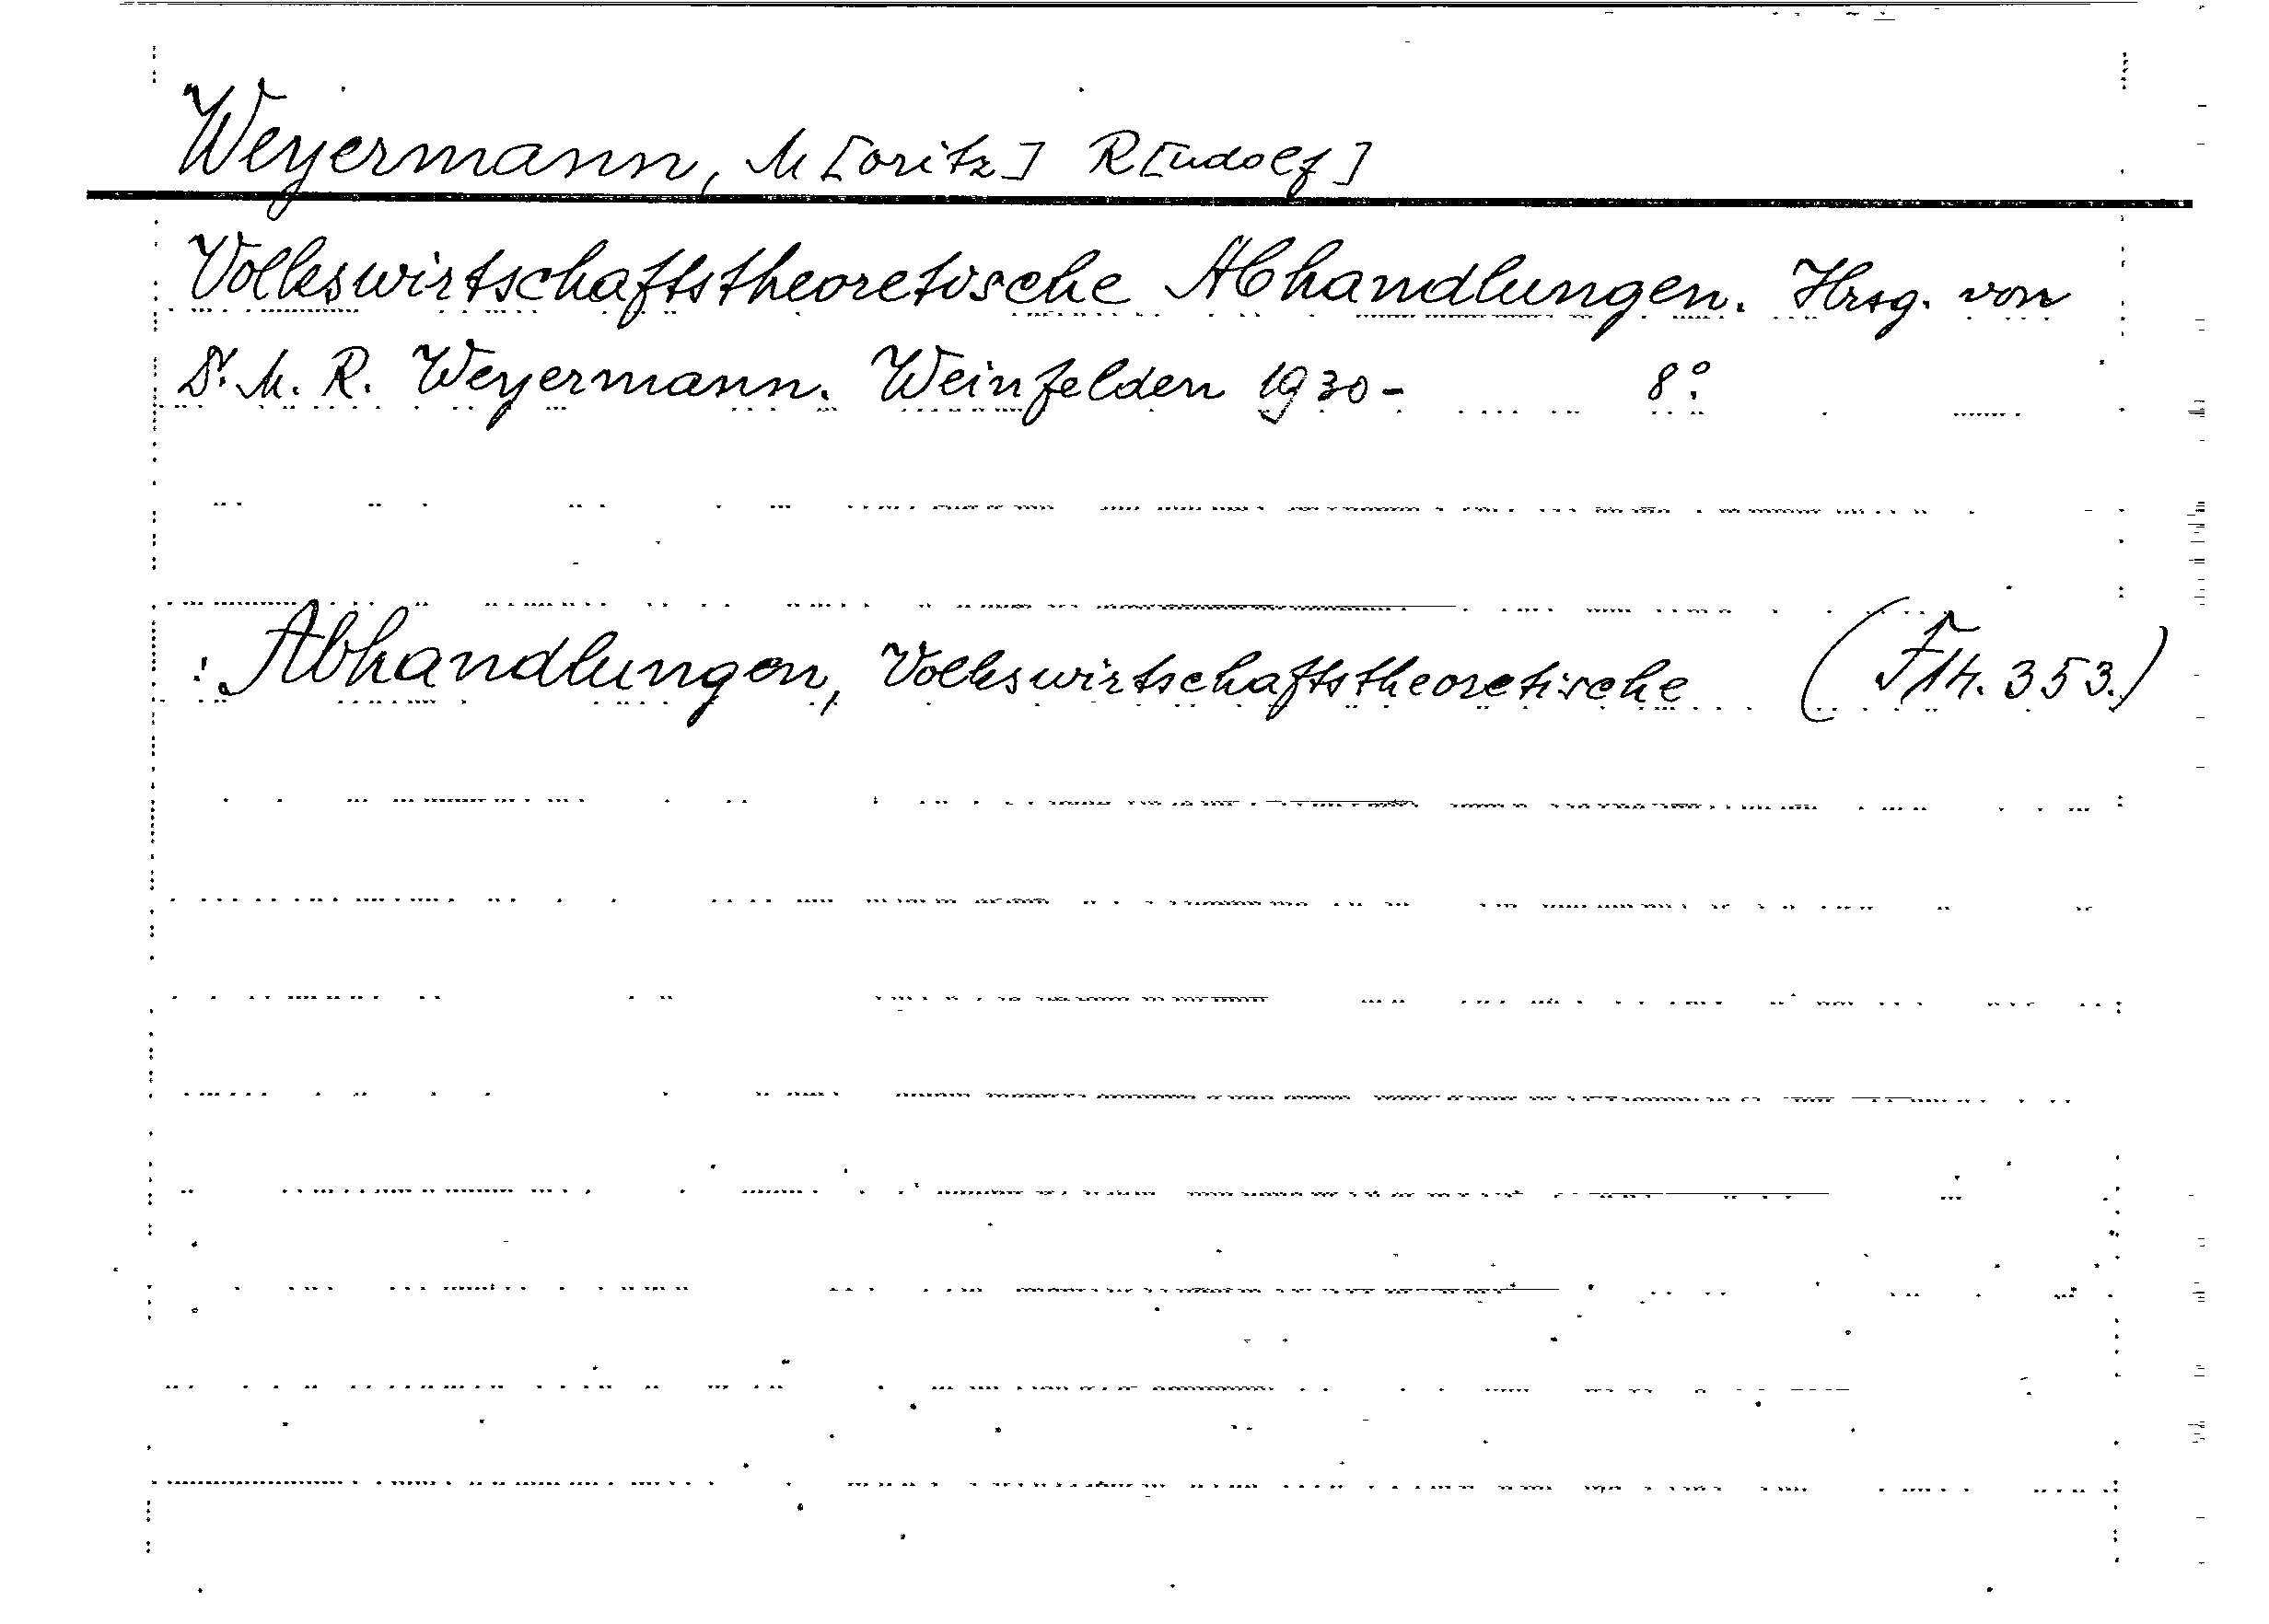 Weyermann, M[oritz] R[udolf]
Volkswirtschaftstheoretische Abhandlungen. Hrsg. von
Dr. M. R. Weyermann. Weinfelden 1930- 8°.
: Abhandlungen, Volkswirtschaftstheoretische (F 14. 353.)